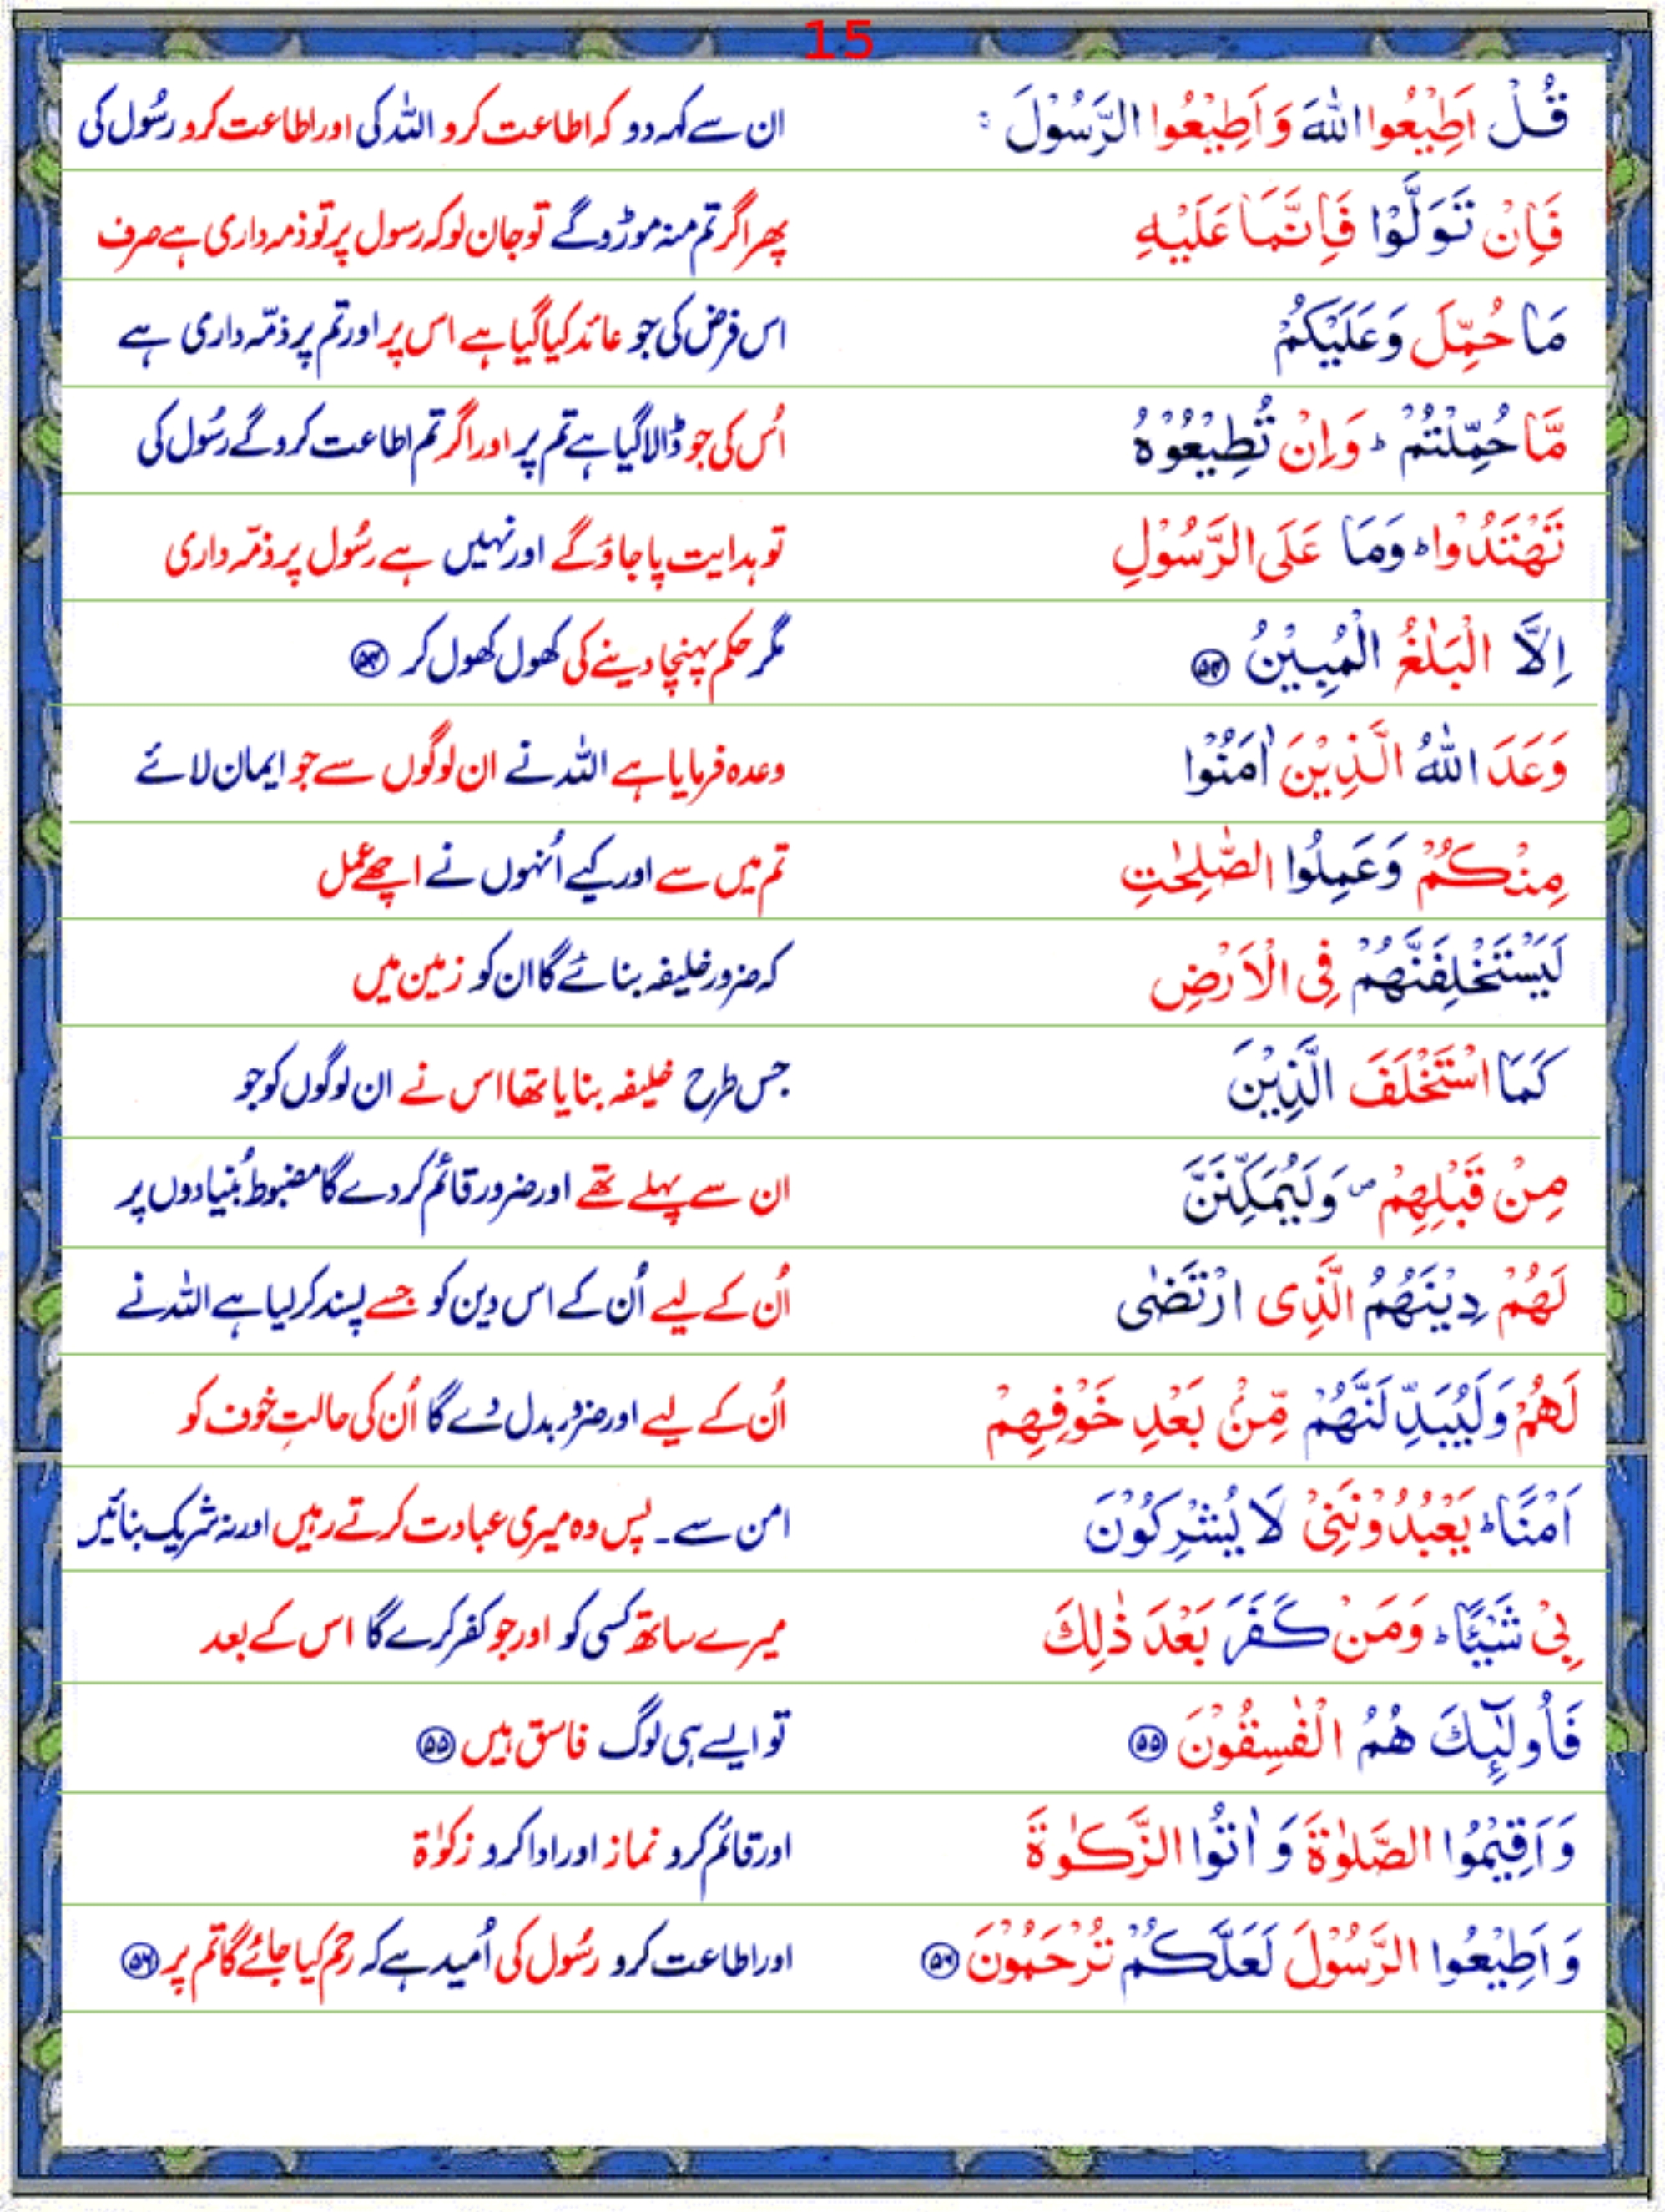 15
قُلْ اَطِيْعُوا اللّٰهَ وَ اَطِيْعُوا الرَّسُوْلَ ۚ ان سے کہہ دو کہ اطاعت کرو اللہ کی اور اطاعت کرو رسُول کی
فَاِنْ تَوَلَّوْا فَاِنَّمَا عَلَيْهِ پھر اگر تم منہ موڑو گے تو جان لو کہ رسول پر تو ذمہ داری ہے صرف
مَا حُمِّلَ وَعَلَيْكُمْ اس فرض کی جو عائد کیا گیا ہے اس پر اور تم پر ذمّہ داری ہے
مَّا حُمِّلْتُمْ ؕ وَاِنْ تُطِيْعُوْهُ اُس کی جو ڈالا گیا ہے تم پر اور اگر تم اطاعت کرو گے رسُول کی
تَهْتَدُوْا ؕ وَمَا عَلَى الرَّسُوْلِ تو ہدایت پا جاؤ گے اور نہیں ہے رسُول پر ذمّہ داری
اِلَّا الْبَلٰغُ الْمُبِيْنُ ۵۴ مگر حکم پہنچا دینے کی کھول کھول کر ۵۴
وَعَدَ اللّٰهُ الَّذِيْنَ اٰمَنُوْا وعدہ فرمایا ہے اللہ نے ان لوگوں سے جو ایمان لائے
مِنْكُمْ وَعَمِلُوا الصّٰلِحٰتِ تم میں سے اور کیے اُنہوں نے اچھے عمل
لَيَسْتَخْلِفَنَّهُمْ فِى الْاَرْضِ کہ ضرور خلیفہ بنائے گا ان کو زمین میں
كَمَا اسْتَخْلَفَ الَّذِيْنَ جس طرح خلیفہ بنایا تھا اس نے ان لوگوں کو جو
مِنْ قَبْلِهِمْ ۪ وَلَيُمَكِّنَنَّ ان سے پہلے تھے اور ضرور قائم کردے گا مضبوط بُنیادوں پر
لَهُمْ دِيْنَهُمُ الَّذِى ارْتَضٰى اُن کے لیے اُن کے اس دین کو جسے پسند کرلیا ہے اللہ نے
لَهُمْ وَلَيُبَدِّلَنَّهُمْ مِّنْۢ بَعْدِ خَوْفِهِمْ اُن کے لیے اور ضرور بدل دے گا اُن کی حالتِ خوف کو
اَمْنًا ؕ يَعْبُدُوْنَنِىْ لَا يُشْرِكُوْنَ امن سے۔ پس وہ میری عبادت کرتے رہیں اور نہ شریک بنائیں
بِىْ شَيْـًٔـا ؕ وَمَنْ كَفَرَ بَعْدَ ذٰلِكَ میرے ساتھ کسی کو اور جو کفر کرے گا اس کے بعد
فَاُولٰٓئِكَ هُمُ الْفٰسِقُوْنَ ۵۵ تو ایسے ہی لوگ فاسق ہیں ۵۵
وَ اَقِيْمُوا الصَّلٰوةَ وَ اٰتُوا الزَّكٰوةَ اور قائم کرو نماز اور ادا کرو زکوٰۃ
وَ اَطِيْعُوا الرَّسُوْلَ لَعَلَّكُمْ تُرْحَمُوْنَ ۵۶ اور اطاعت کرو رسُول کی اُمید ہے کہ رحم کیا جائے گا تم پر ۵۶